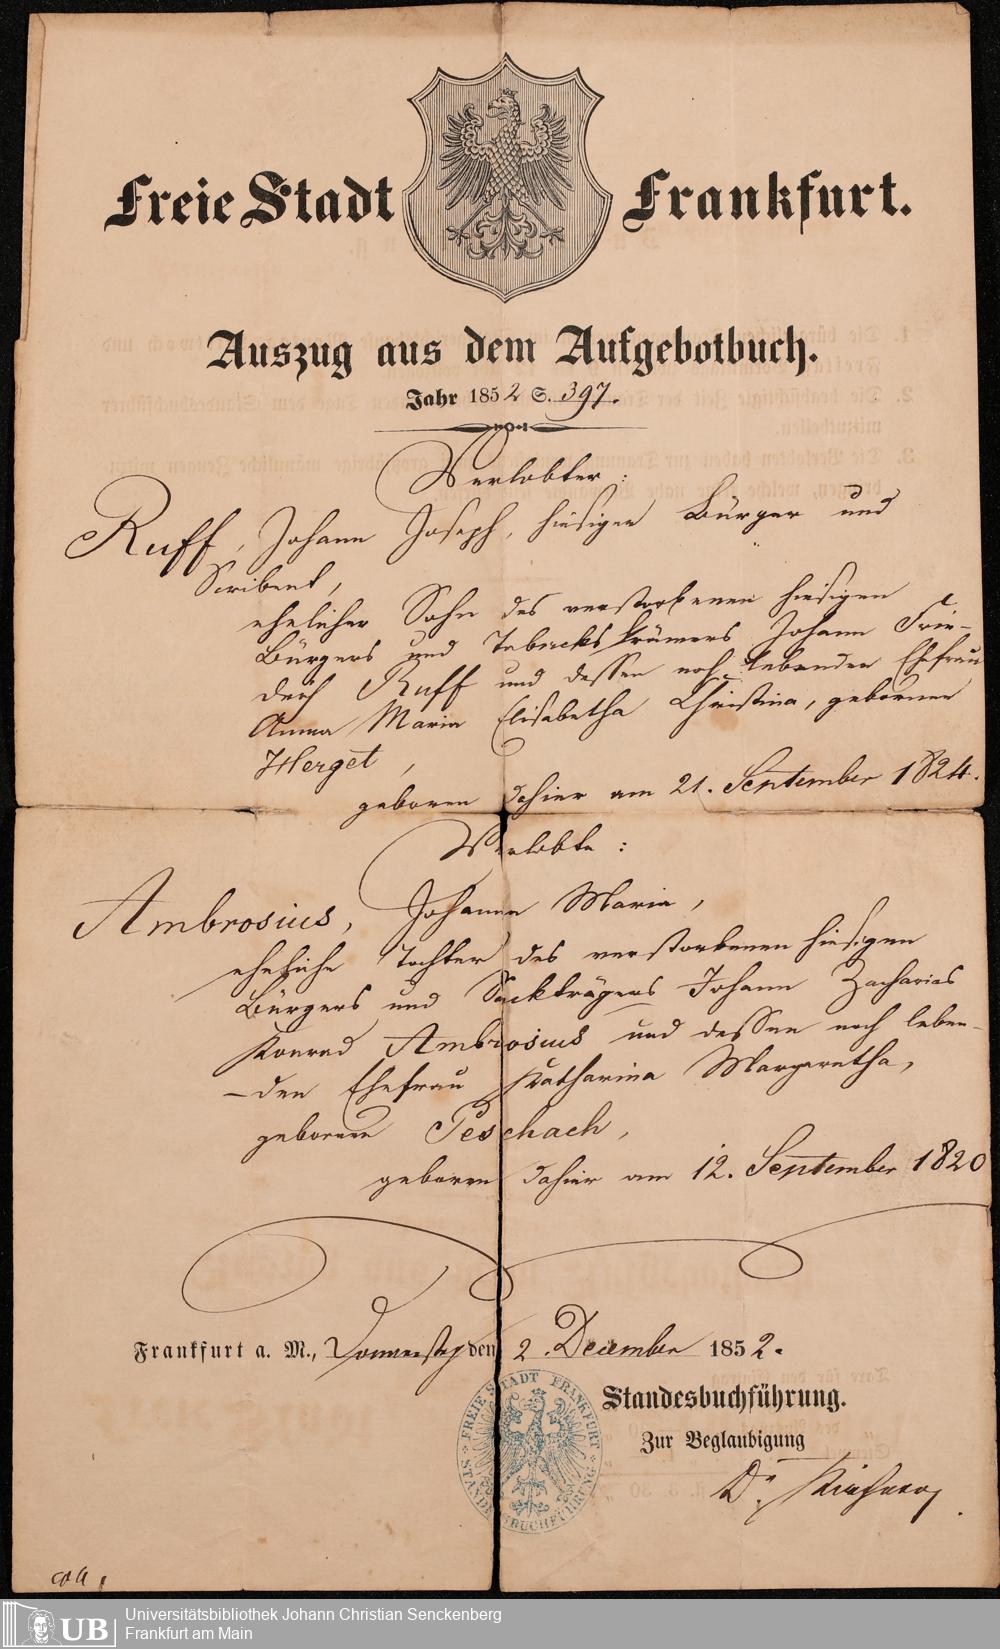 Freie Stadt Frankfurt.
Auszug aus dem Aufgebotbuch.
Jahr 1852 S. 397.
Verlobter:
Ruff, Johann Joseph, hiesiger Bürger und
Scribent,
ehelicher Sohn des verstorbenen hiesigen
Bürgers und Tabackskrämers Johann Frie-
drich Ruff und dessen noch lebenden Ehefrau
Anna Maria Elisabetha Christina, gebornen
Herget,
geboren dahier am 21. September 1824.
Verlobte:
Ambrosius, Johanna Maria,
eheliche Tochter des verstorbenen hiesigen
Bürgers und Sackträgers Johann Zacharias
Konrad Ambrosius und dessen noch leben-
-den Ehefrau Katharina Margaretha,
geborene Peschach,
geboren dahier am 12. September 1820
Frankfurt a. M., Donnerstag den 2. December 1852.
FREIE STADT FRANKFURT
STANDESBUCHFÜHRUNG
Standesbuchführung.
Zur Beglaubigung
Dr.
Universitätsbibliothek Johann Christian Senckenberg
UB Frankfurt am Main